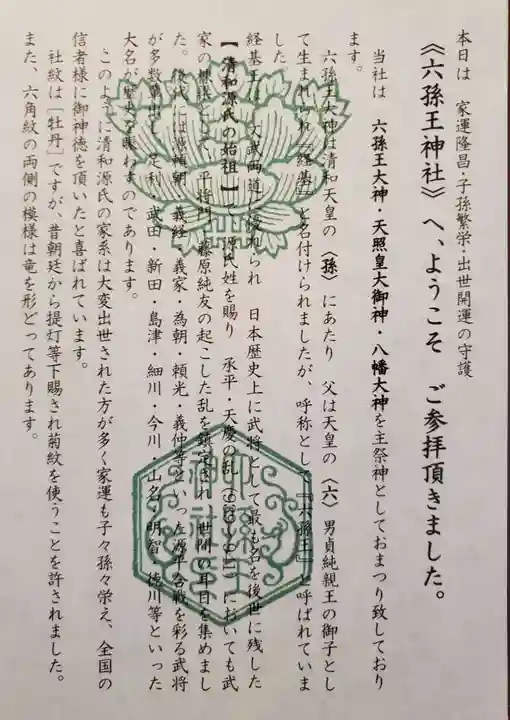 本日は 家運隆昌・子孫繁栄・出世開運の守護
《六孫王神社》へ、ようこそ ご参拝頂きました。
当社は 六孫王大神・天照皇大御神・八幡大神を主祭神としておまつり致しており
ます。
六孫王大神は清和天皇の〈孫〉にあたり 父は天皇の〈六〉男貞純親王の御子とし
て生まれられ『経基』と名付けられましたが、呼称として『六孫王』と呼ばれていま
した。
経基王は 文武両道に優れられ 日本歴史上に武将として最も名を後世に残した
【清和源氏の始祖】で 源氏姓を賜り 承平・天慶の乱においても武
家の棟梁として 平将門・藤原純友の起こした乱を鎮定され 世間の耳目を集めまし
た。後代には源頼朝・義経・義家・為朝・頼光・義仲等といった源平合戦を彩る武将
が多数輩出し 足利・武田・新田・島津・細川・今川・山名・明智・徳川等といった
大名が歴史を賑わすのであります。
このように清和源氏の家系は大変出世された方が多く家運も子々孫々栄え、全国の
信者様に御神徳を頂いたと喜ばれています。
社紋は「牡丹」ですが、昔朝廷から提灯等下賜され菊紋を使うことを許されました。
また、六角紋の両側の模様は竜を形どってあります。